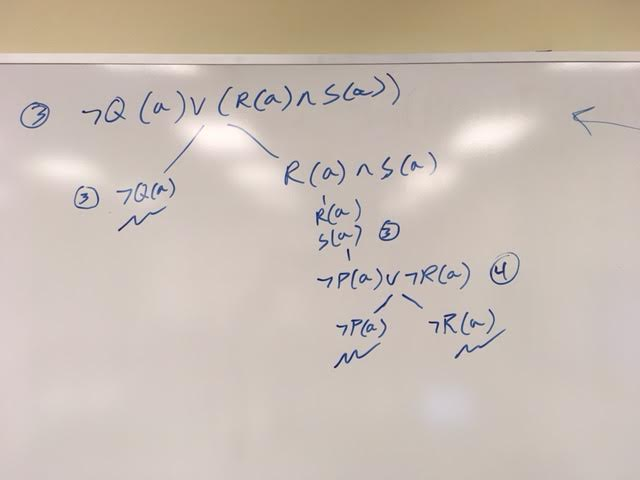 ③ ¬Q(a) ∨ (R(a) ∧ S(a))
③ ¬Q(a)
R(a) ∧ S(a)
R(a)
S(a) ③
¬P(a) ∨ ¬R(a) ④
¬P(a) ¬R(a)